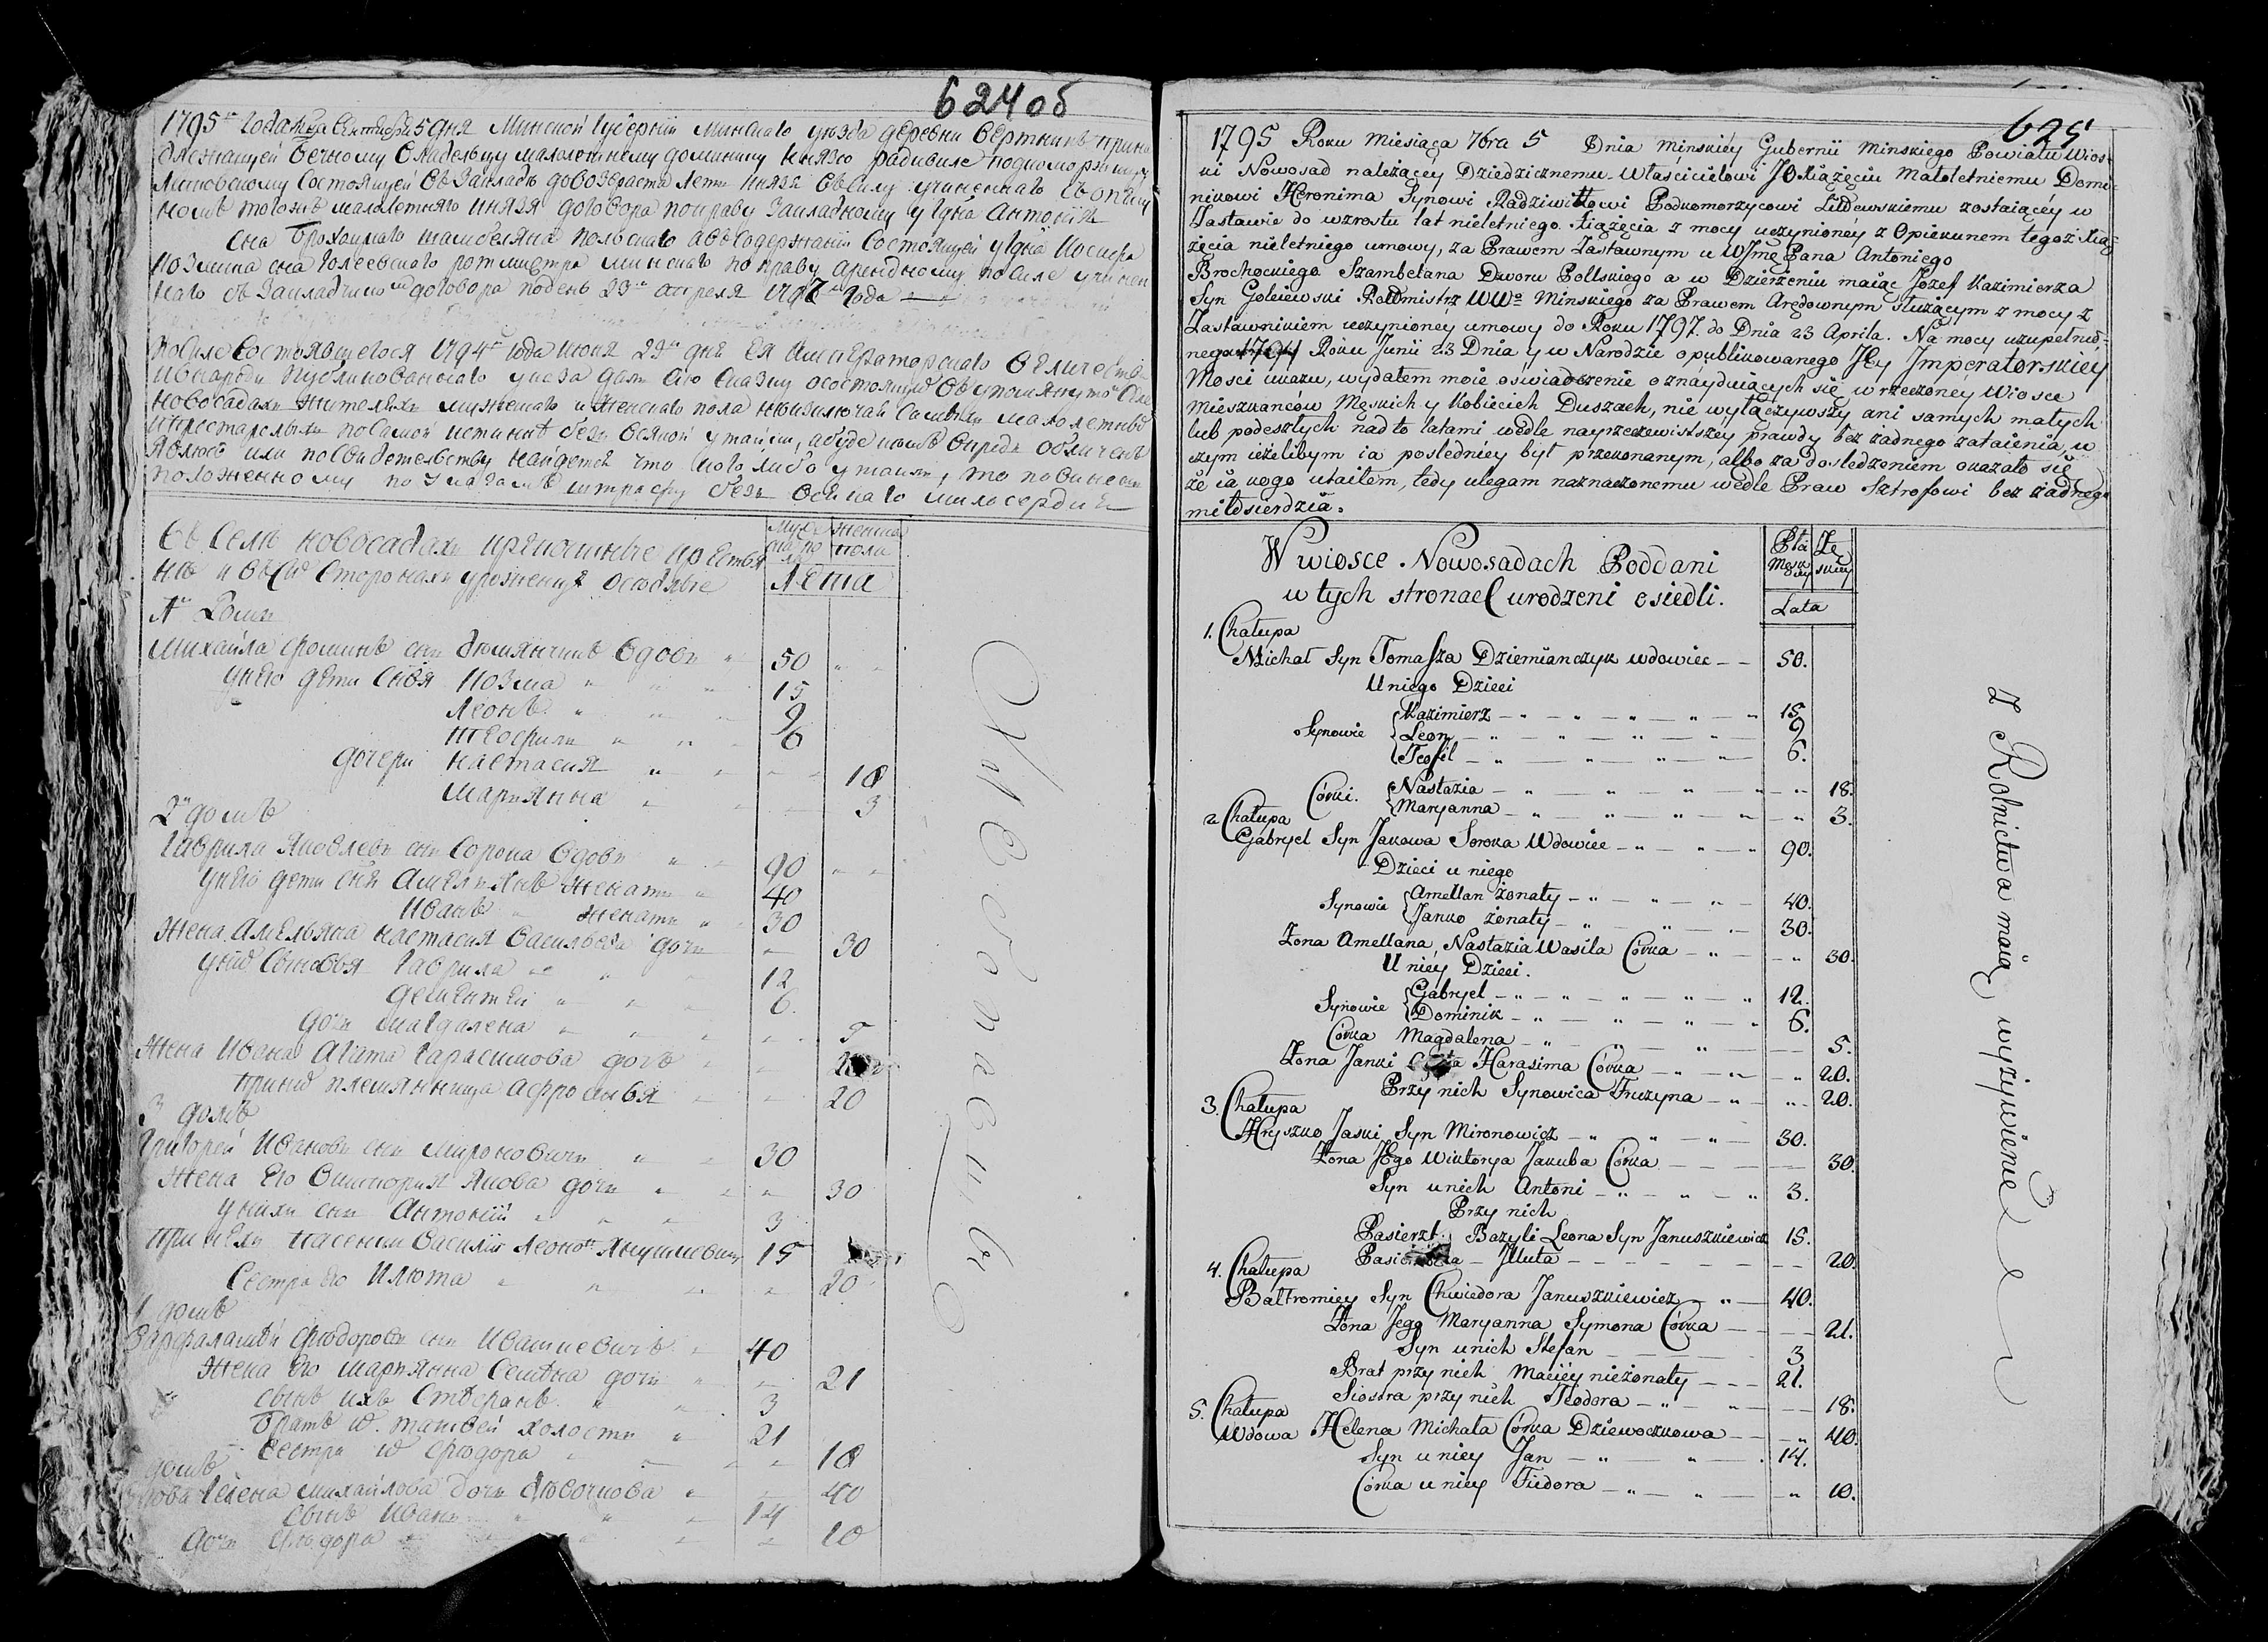 624 об
1795го года мца Сентебря 5 дня Минской губернии минскаго уезда деревни
Вечному владельцу малолетнему доминику князю радивиле подкоморжицу
Литовскому состоящей в закладе до возраста лет князя в силу учиненнаго с опеку
ном того ж малолетняго князя договора по праву закладному у гдна Антония
сна Брохоцкаго шамбеляна польскаго а в содержании состоящей у гдна Иосифа
Козмина сна голеевскаго ротмистра минскаго по праву арендному по силе учинен
наго с закладчиком договора по день 23го апреля 1797го года
По силе состоявшегося 1794го года июня 23го дня Ея Императорскаго Величества
и в народе публикованнаго указа дал сию сказку о состоящих в упомянутой
новосадах жителях мужескаго и женскаго пола не изключая самых малолетных
и престарелых по самой истинне без всякой утайки, а буде кем впредь обличен
явлюсь или по свидетельству найдется что кого либо утаил, то повинен
положенному по указам штрафу без всякаго милосердия
В селе новосадах крепостные крестья
не и в сих сторонах уроженцы оседлые
мужеска полу
женска пола
Лета
1й Домъ
Михайла фомин сын дземянчик вдов 50
у него дети сновя козма 15
Леон 9
теофил 6
дочери настасия 18
марианна 3
2й домъ
гаврила Яковлев сын Сорока вдов 90
у него дети сня Амелиян женат 40
Иван женат 30
жена Амельяна настасия Васильева дочь 30
у них сыновья гаврила 12
дементей 6
дочь магдалена 5
жена Ивана Агата гарасимова дочь
при них племянница афросинья 20
3 домъ
григорей Иванов сын миронович 30
жена его виктория Якова дочь 30
у них сын Антоний 3
при нем пасенки Василий Леонов Янушкевич 15
сестра его Илюта 20
4 домъ
Варфаламей федоров сын Ивашкевич 40
жена его марианна семена дочь 21
сын их стефан 3
брат их матвей холост 21
сестра их федора 18
домъ
вдова Гелена михайлова дочь дзевочкова 40
сын Иван 14
дочь федора 10
625
1795 Roku Miesiąca 7bra 5 Dnia Minskiéy Gubernii Minskiego Powiatu Wios-
ki Nowosad należącéy Dziedzicznemu Właścicielowi JOXiążęciu Małoletniemu Domi-
nikowi Heronima Synowi Radziwiłłowi Podkomorzycowi Littewskiemu zostaiącéy w
Zastawie do wzrostu lat nieletniego Xiążęcia z mocy uczynioney z Opiekunem tegoż Xią-
żęcia nieletniego umowy, za Prawem Zastawnym u WJmę Pana Antoniego
Brochockiego Szambelana Dworu Polskiego a w Dzierżeniu maiąc Jozef Kazimierza
Syn Goleiewski Rotmistrz WWa Minskiego za Prawem Arędownym służącym z mocy z
Zastawnikiem uczynionéy umowy do Roku 1797. do Dnia 23 Aprila. Na mocy uzupełnio-
nego 1794 Roku Junii 23 Dnia y w Narodzie opublikowanego Jéy Imperatorskiéy
Mości ukazu, wydałem moie oświadczenie o znayduiących się w rzeczonéy Wiosce
Mieszkańców Męskich y Kobiecich Duszach, nie wyłączywszy ani samych małych
lub podeszłych nad to latami wedle nayrzeczewistszéy prawdy bez żadnego zataienia, w
czym ieżelibym ia posledniéy był przekonanym, albo za dosledzeniem okazało się
że ia kogo utaiłem, tedy ulegam naznaczonemu wedle Praw Sztrofowi bez żadnego
miłosierdzia.
W wiosce Nowosadach Poddani
w tych stronach urodzeni osiedli.
Płci Męskiey
Żęskiey
Lata
1. Chałupa
Michał Syn Tomasza Dziemianczyk wdowiec 50.
U niego Dzieci
Synowie Kazimierz 15
Leon 9
Teofil 6.
Córki. Nastazia 18.
Maryanna 3.
2. Chałupa
Gabryel Syn Jakowa Soroka Wdowiec 90.
Dzieci u niego
Synowie Amellan żonaty 40.
Janko żonaty 30.
Żona Amellana Nastazia Wasila Córka 30.
U niéy Dzieci.
Synowie Gabryel 12.
Dominik 6.
Córka Magdalena 5.
Żona Janki Harasima Córka 20.
Przy nich Synowica Fruzyna 20.
3. Chałupa
Hryszko Jaski Syn Mironowicz 30.
Żona Jégo Wiktorya Jakuba Córka 30.
Syn u nich Antoni 3.
Przy nich
Pasierzb Bazyli Leona Syn Januszkiewicz 15.
Illuta 20.
4. Chałupa
Bałtromiey Syn Chwiedora Januszkiewicz 40.
Żona Jego Maryanna Symona Córka 21.
Syn u nich Stefan 3
Brat przy nich Maciéy nieżonaty 21.
Siostra przy nich Teodora 18.
5. Chałupa
Wdowa Helena Michała Córka Dziewoczkowa 40.
Syn u niey Jan 14.
Córka u niey Fiedora 10.
z Rolnictwa maią wyżywienie